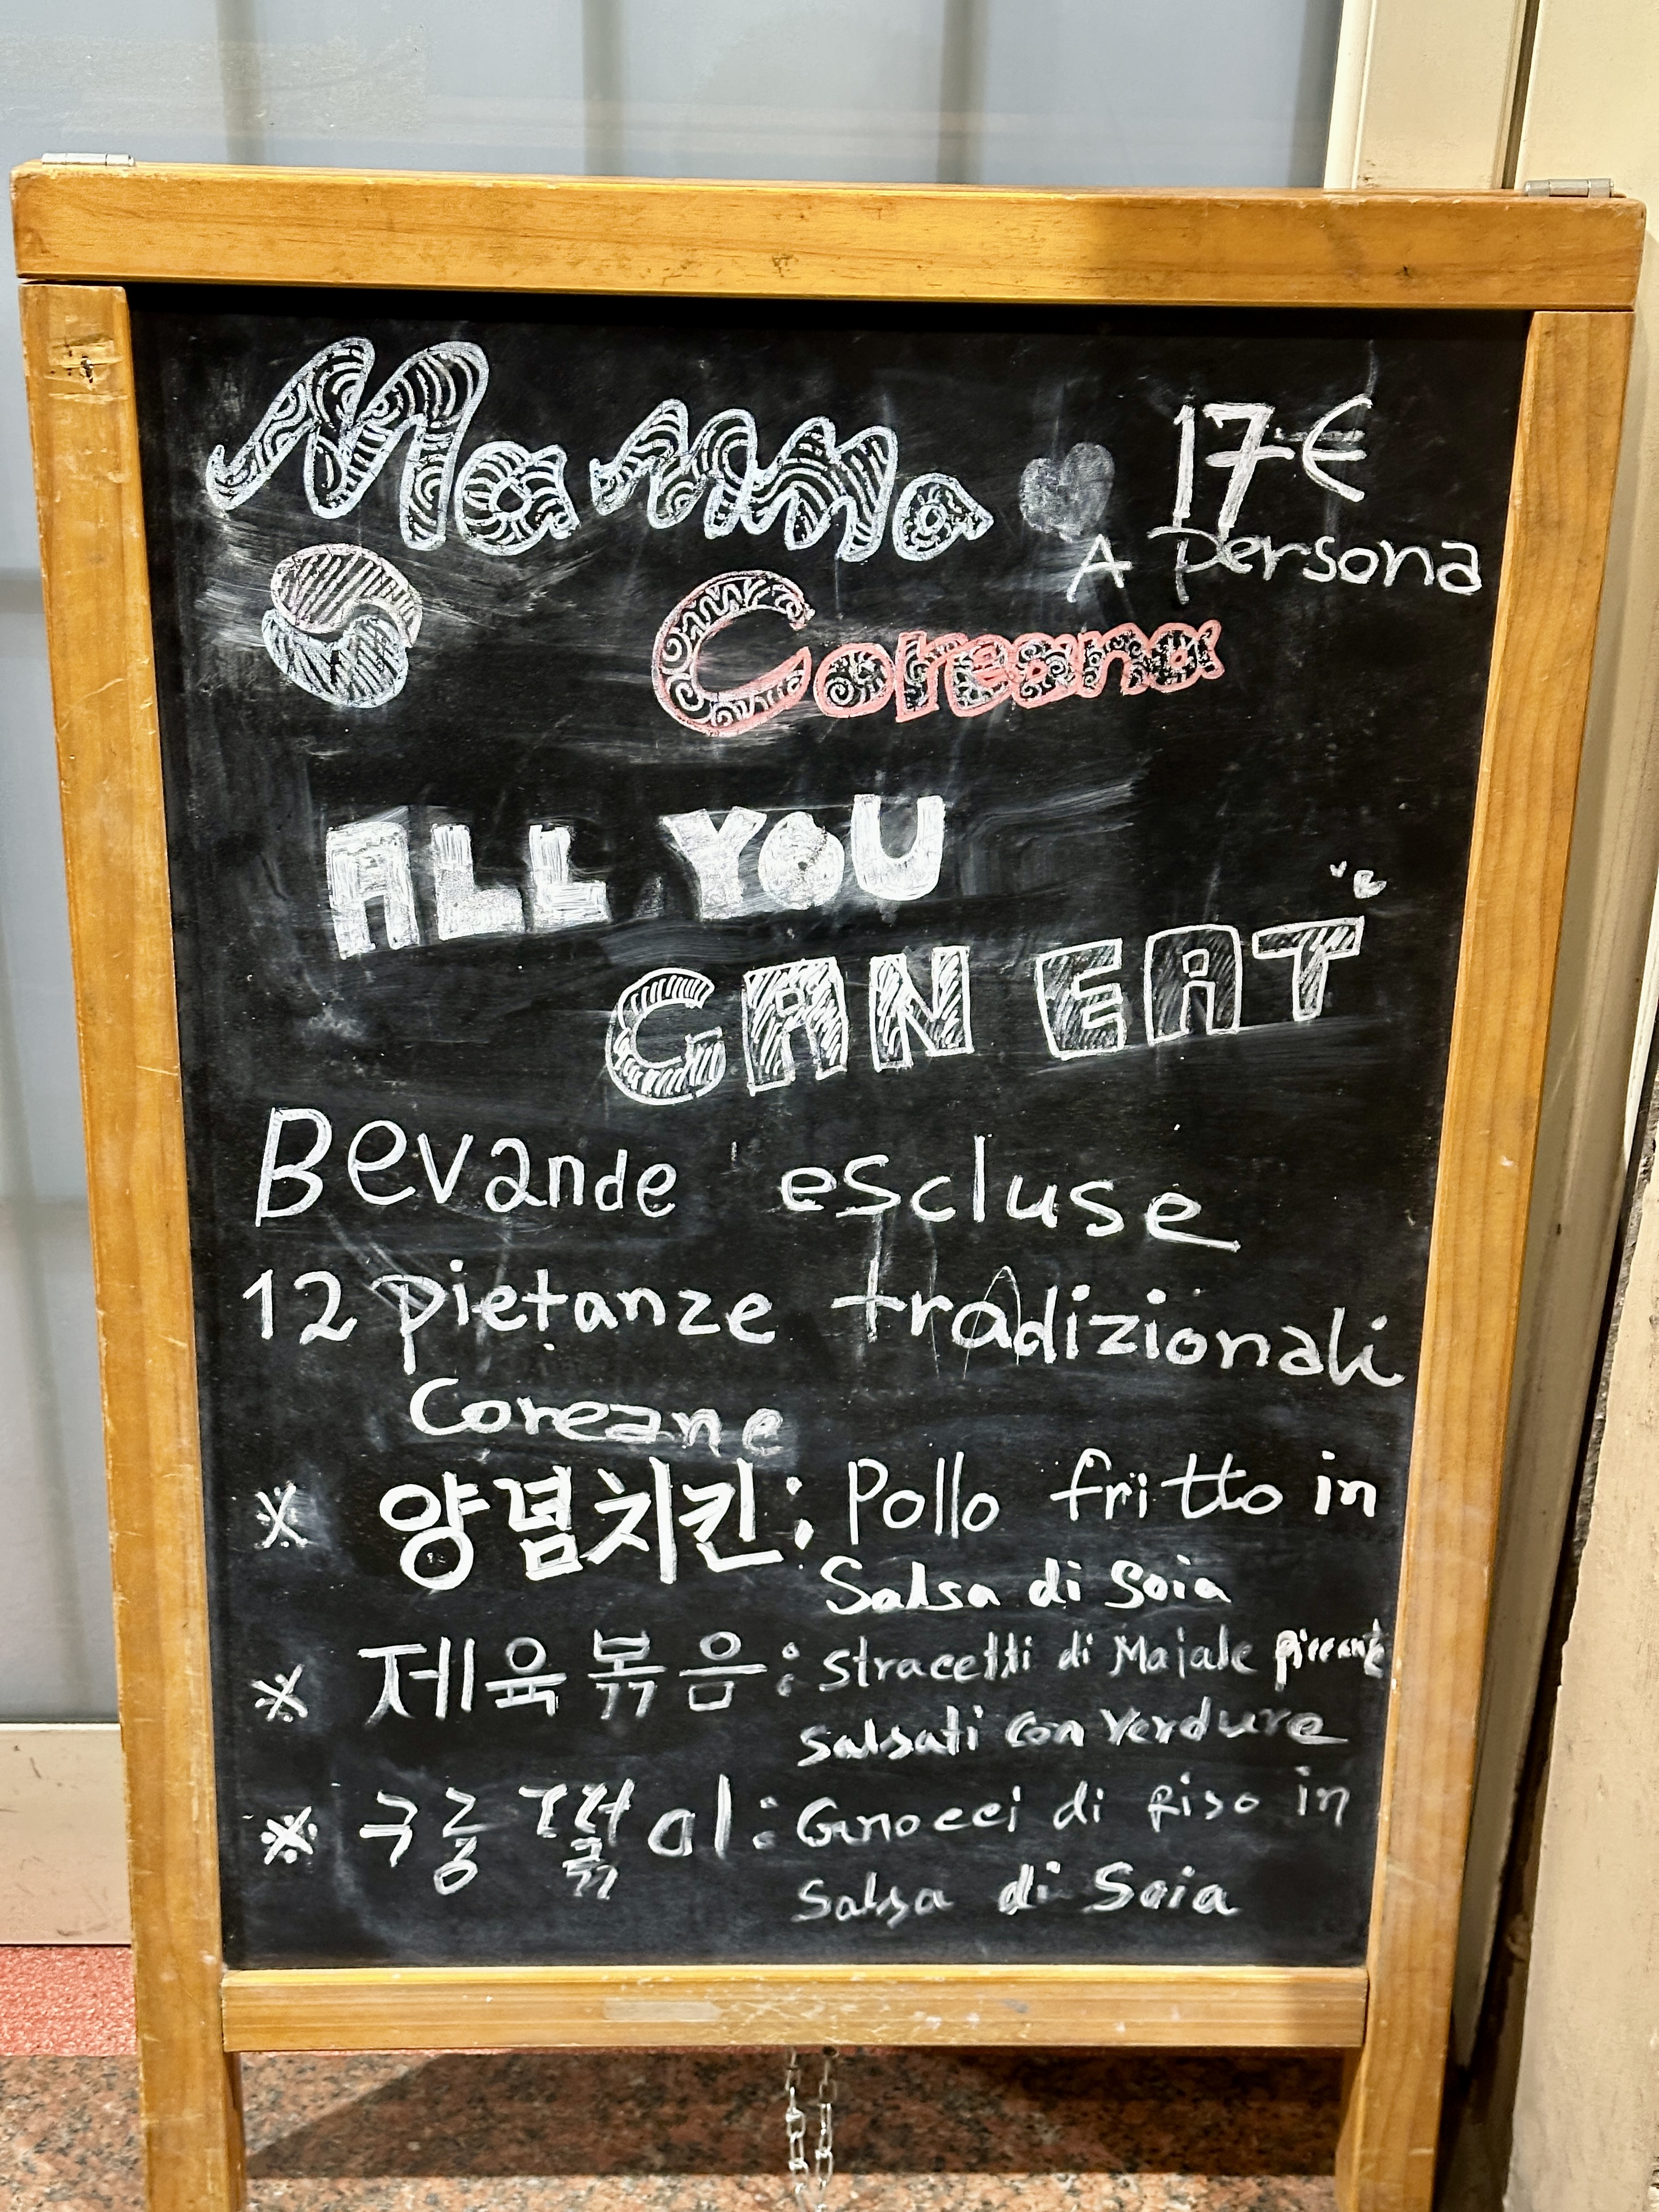 Mamma 17€
A persona
Coreana
ALL YOU
CAN EAT
Bevande escluse
12 pietanze tradizionali
Coreane
※ 양념치킨: Pollo fritto in
Salsa di Soia
※ 제육볶음: Stracetti di Maiale piccante
Salsati con Verdure
※ 궁중떡볶이: Gnocci di Riso in
Salsa di Soia